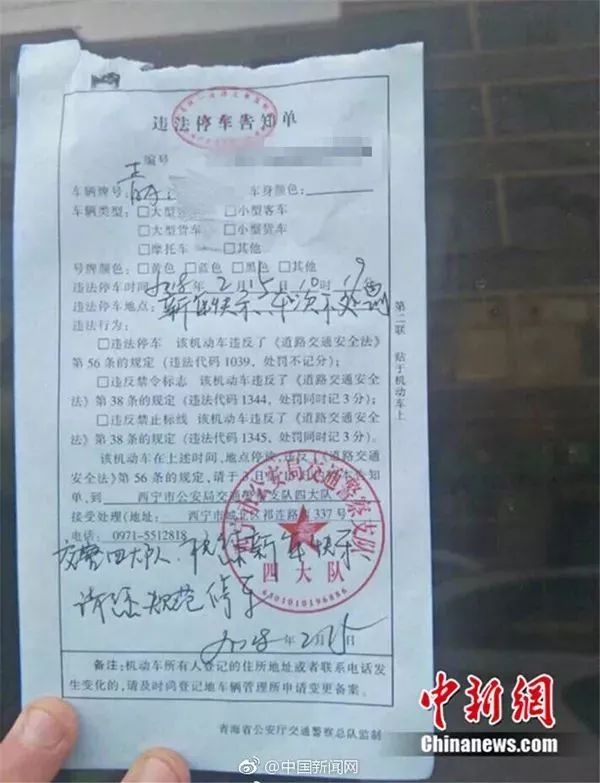 违法停车告知单
编号
车辆牌号：青 车身颜色：
车辆类型：□大型客车 □小型客车
□大型货车 □小型货车
□摩托车 □其他
号牌颜色：□黄色 □蓝色 □黑色 □其他
违法停车时间：2018年2月15日10时19分
违法停车地点：新年快乐、本次不处罚
违法行为：
□违法停车 该机动车违反了《道路交通安全法》
第56条的规定（违法代码1039，处罚不记分）；
□违反禁令标志 该机动车违反了《道路交通安全
法》第38条的规定（违法代码1344，处罚同时记3分）；
□违反禁止标线 该机动车违反了《道路交通安全
法》第38条的规定（违法代码1345，处罚同时记3分）。
该机动车在上述时间、地点停放，违反《道路交通
安全法》第56条的规定，请于3日 持本告知
单，到 西宁市公安局交通警察支队四大队
接受处理（地址： 西宁市城北区祁连路西337号
电话：0971-5512818
交警四大队 祝您新年快乐
请您规范停车
2018年2月15日
备注：机动车所有人登记的住所地址或者联系电话发
生变化的，请及时向登记地车辆管理所申请变更备案。
青海省公安厅交通警察总队监制
第二联 贴于机动车上
西宁市公安局交通警察支队
四大队
6301010196886
中新网
Chinanews.com
@中国新闻网